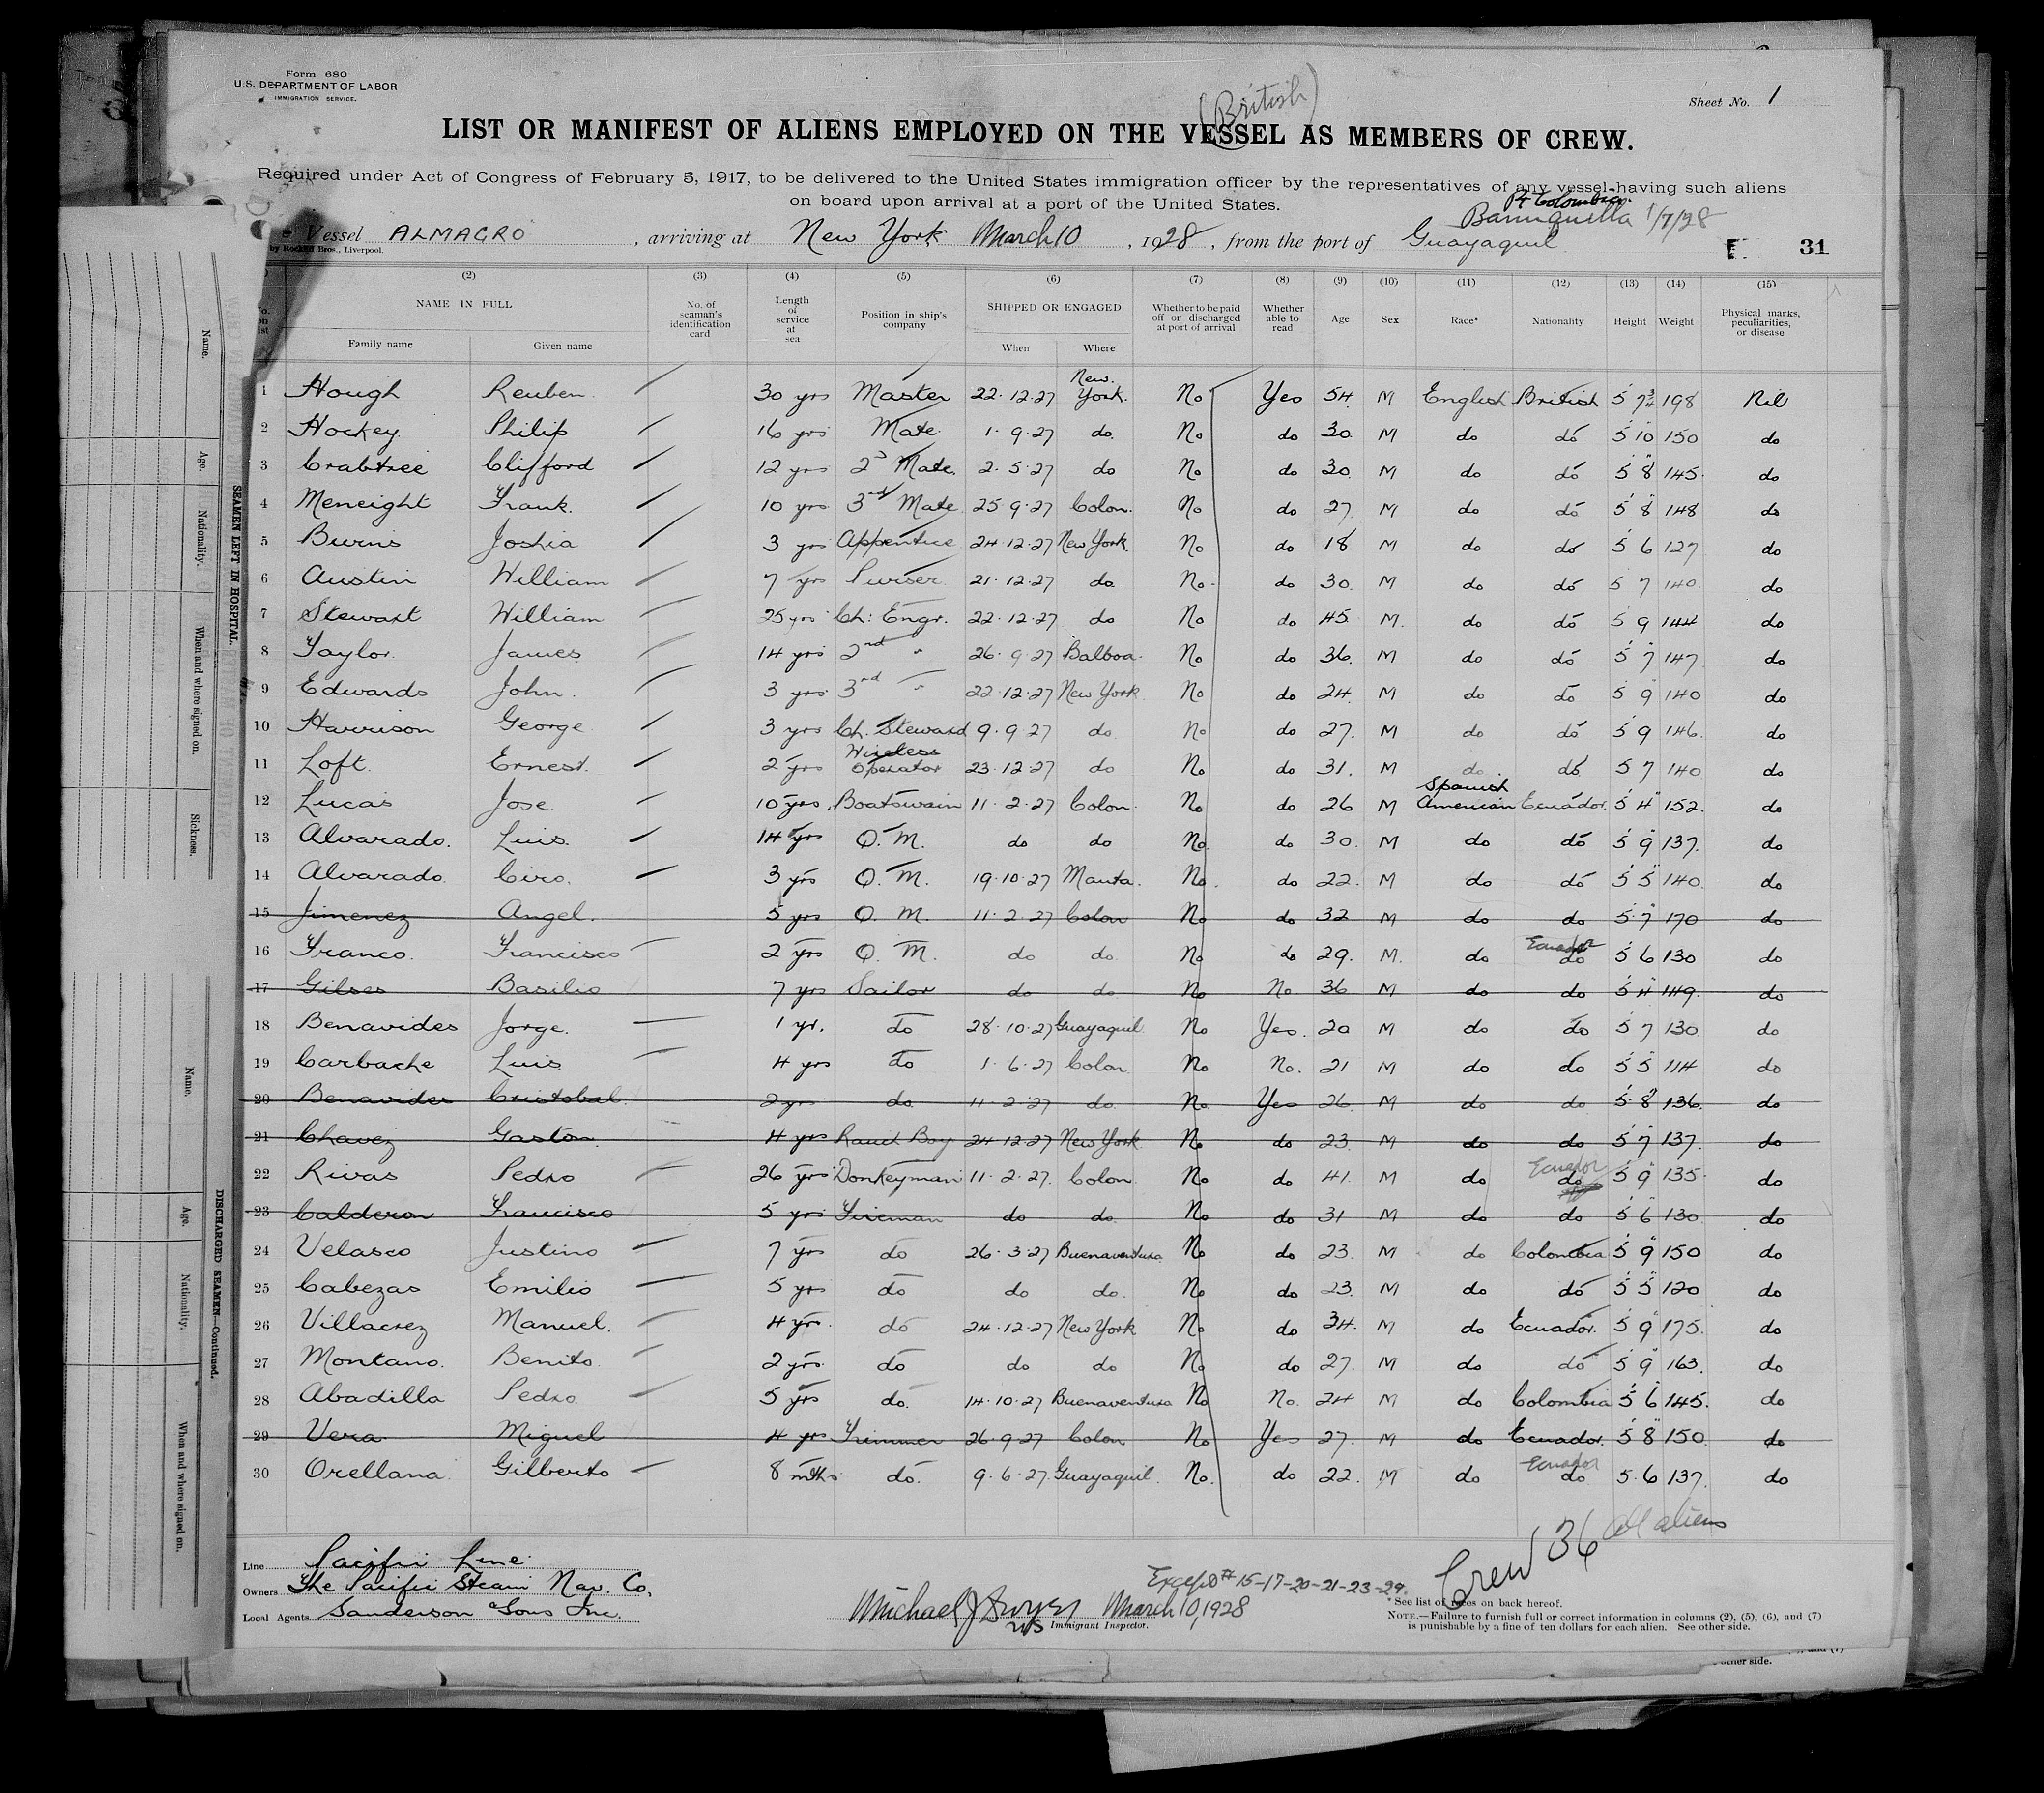 Form 680
U.S. DEPARTMENT OF LABOR
IMMIGRATION SERVICE.
Sheet No. 1
(British)
LIST OR MANIFEST OF ALIENS EMPLOYED ON THE VESSEL AS MEMBERS OF CREW.
Required under Act of Congress of February 5, 1917, to be delivered to the United States immigration officer by the representatives of any vessel having such aliens
on board upon arrival at a port of the United States.
Pt Colombia.
Vessel ALMAGRO, arriving at New York March 10, 1928, from the port of Guayaquil
by Rockliff Bros., Liverpool.
31
(2) (3) (4) (5) (6) (7) (8) (9) (10) (11) (12) (13) (14) (15)
NAME IN FULL
Family name Given name
No. of seaman's identification card
Length of service at sea
Position in ship's company
SHIPPED OR ENGAGED
When Where
Whether to be paid off or discharged at port of arrival
Whether able to read
Age
Sex
Race*
Nationality
Height
Weight
Physical marks, peculiarities, or disease
1 Hough Reuben 30 yrs Master 22.12.27 New York. No Yes 54 M English British 5 7¾ 198 Nil
2 Hockey Philip 16 yrs Mate 1.9.27 do. No do 30 M do do 5 10 150 do
3 Crabtree Clifford 12 yrs 2nd Mate 2.5.27 do No do 30 M do do 5 8 145 do
4 Meneight Frank 10 yrs 3rd Mate 25.9.27 Colon. No do 27 M do do 5 8 148 do
5 Burns Joshia 3 yrs Apprentice 24.12.27 New York. No do 18 M do do 5 6 127 do
6 Austin William 7 yrs Purser 21.12.27 do. No do 30 M do do 5 7 140 do
7 Stewart William 25 yrs Ch: Engr. 22.12.27 do No do 45 M. do do 5 9 144 do
8 Taylor James 14 yrs 2nd " 26.9.27 Balboa. No do 36. M do do 5 7 147 do
9 Edwards John. 3 yrs 3rd " 22.12.27 New York No do 24. M do do 5 9 140 do
10 Harrison George 3 yrs Ch. Steward 9.9.27 do. No do 27. M do do 5 9 146. do
11 Loft. Ernest. 2 yrs Wireless Operator 23.12.27 do No do 31. M do do 5 7 140 do
12 Lucas Jose 10 yrs. Boatswain 11.2.27 Colon. No do 26 M Spanish American Ecuador. 5 4 152. do
13 Alvarado. Luis. 14 yrs Q. M. do do No. do 30. M do do 5 9 137. do
14 Alvarado Ciro. 3 yrs Q. M. 19.10.27 Manta. No. do 22. M do do 5 5 140. do
15 Jimenez Angel. 5 yrs Q. M. 11.2.27 Colon No do 32 M do do 5 7 170 do
16 Franco. Francisco 2 yrs Q. M. do do. No do 29. M. do Ecuador do 5 6 130 do
17 Gilses Basilio 7 yrs Sailor do do No No. 36 M do do 5 4 149. do
18 Benavides Jorge. 1 yr. do 28.10.27 Guayaquil. No Yes. 20 M do do 5 7 130. do
19 Carbache Luis 4 yrs do 1.6.27 Colon. No No. 21 M do do 5 5 114 do
20 Benavides Cristobal. 2 yrs do. 11.2.27 do. No. Yes 26. M do do 5 8 136. do
21 Chavez Gaston. 4 yrs 24.12.27 New York No do 23. M do do 5 7 137. do
22 Rivas Pedro 26 yrs Donkeyman 11.2.27. Colon No do 41. M do Ecuador do 5 9 135. do
23 Calderon Francisco 5 yrs Fireman do do. No do 31 M do do 5 6 130. do
24 Velasco Justino 7 yrs do 26.3.27 Buenaventura No do 23. M do Colombia 5 9 150 do
25 Cabezas Emilio 5 yrs do do do. No do 23. M do do 5 5 120 do
26 Villacrez Manuel. 4 yrs. do 24.12.27 New York No do 34. M do Ecuador. 5 9 175. do
27 Montano. Benito. 2 yrs. do do do No do 27. M do do 5 9 163. do
28 Abadilla Pedro 5 yrs do. 14.10.27 Buenaventura No No. 24 M do Colombia 5 6 145. do
29 Vera Miguel 4 yrs Trimmer 26.9.27 Colon No Yes 27. M do Ecuador. 5 8 150. do
30 Orellana. Gilberto 8 mths. do. 9.6.27. Guayaquil. No. do 22. M do Ecuador do 5.6 137. do
Crew 36 all aliens
Except # 15-17-20-21-23-29.
Line Pacific Line
Owners The Pacific Steam Nav. Co.
Local Agents Sanderson & Sons Inc.
March 10, 1928
US Immigrant Inspector.
* See list of races on back hereof.
NOTE.—Failure to furnish full or correct information in columns (2), (5), (6), and (7)
is punishable by a fine of ten dollars for each alien. See other side.
other side.
SEAMEN LEFT IN HOSPITAL.
Name.
Age.
Nationality.
When and where signed on.
Sickness.
DISCHARGED SEAMEN—Continued.
Name.
Age.
Nationality.
When and where signed on.